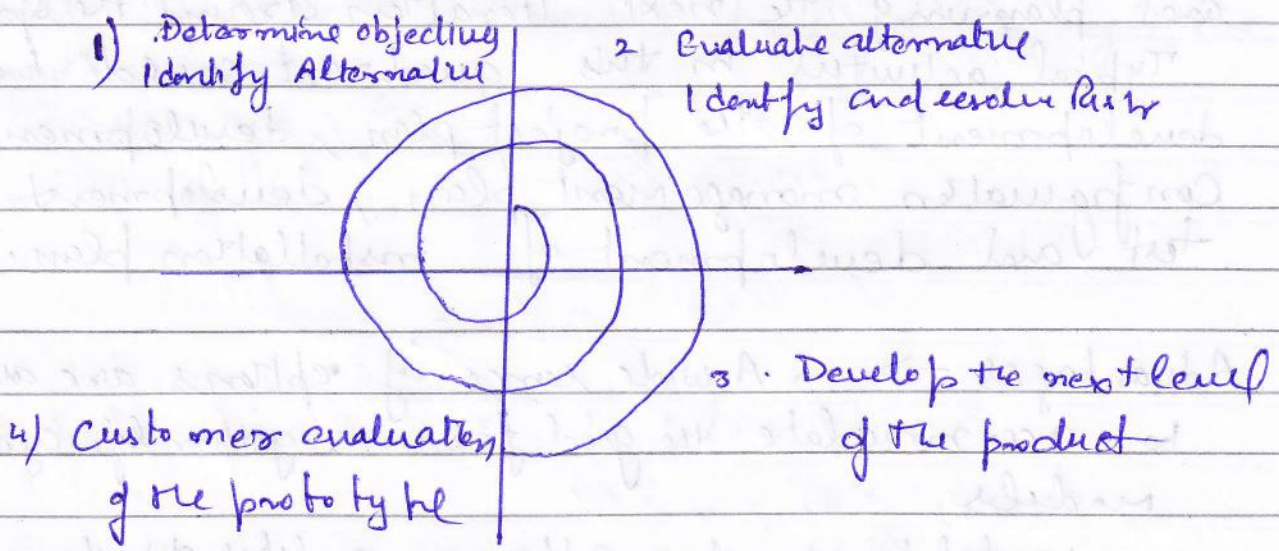 1) Determine objectives
Identify Alternative
2 Evaluate alternative
Identify and resolve Risk
3. Develop the next level
of the product
4) Customer evaluation
of the prototype